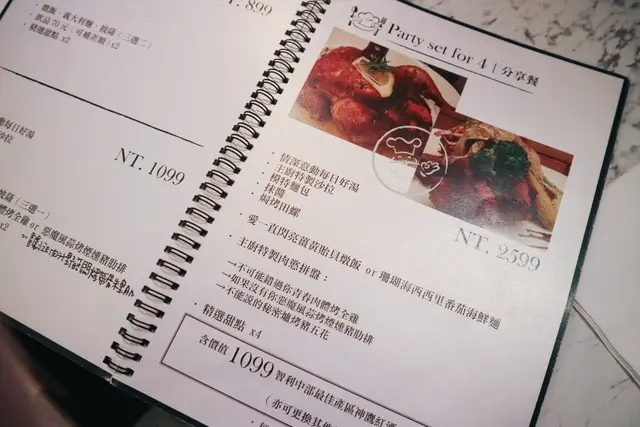 NT. 899
燉飯、義大利麵、披薩（三選二）
飲品70元（可補差額）x2
精選甜點 x2
動每日好湯
沙拉
NT. 1099
披薩（三選一）
體烤全雞 or 惡魔風蒜烤煙燻豬肋排
x2
Party set for 4 | 分享餐
NT. 2599
· 情深意動每日好湯
· 主廚特製沙拉
· 模特麵包
· 抹醬
· 焗烤田螺
· 愛一直閃亮薑黃胎貝燉飯 or 珊瑚海西西里番茄海鮮麵
· 主廚特製肉慾拼盤：
→不可能錯過你青春肉體烤全雞
→如果沒有你惡魔風蒜烤煙燻豬肋排
→不能說的秘密爐烤豬五花
· 精選甜點 x4
含價值 1099 智利中部最佳產區神鷹紅酒
（亦可更換其他